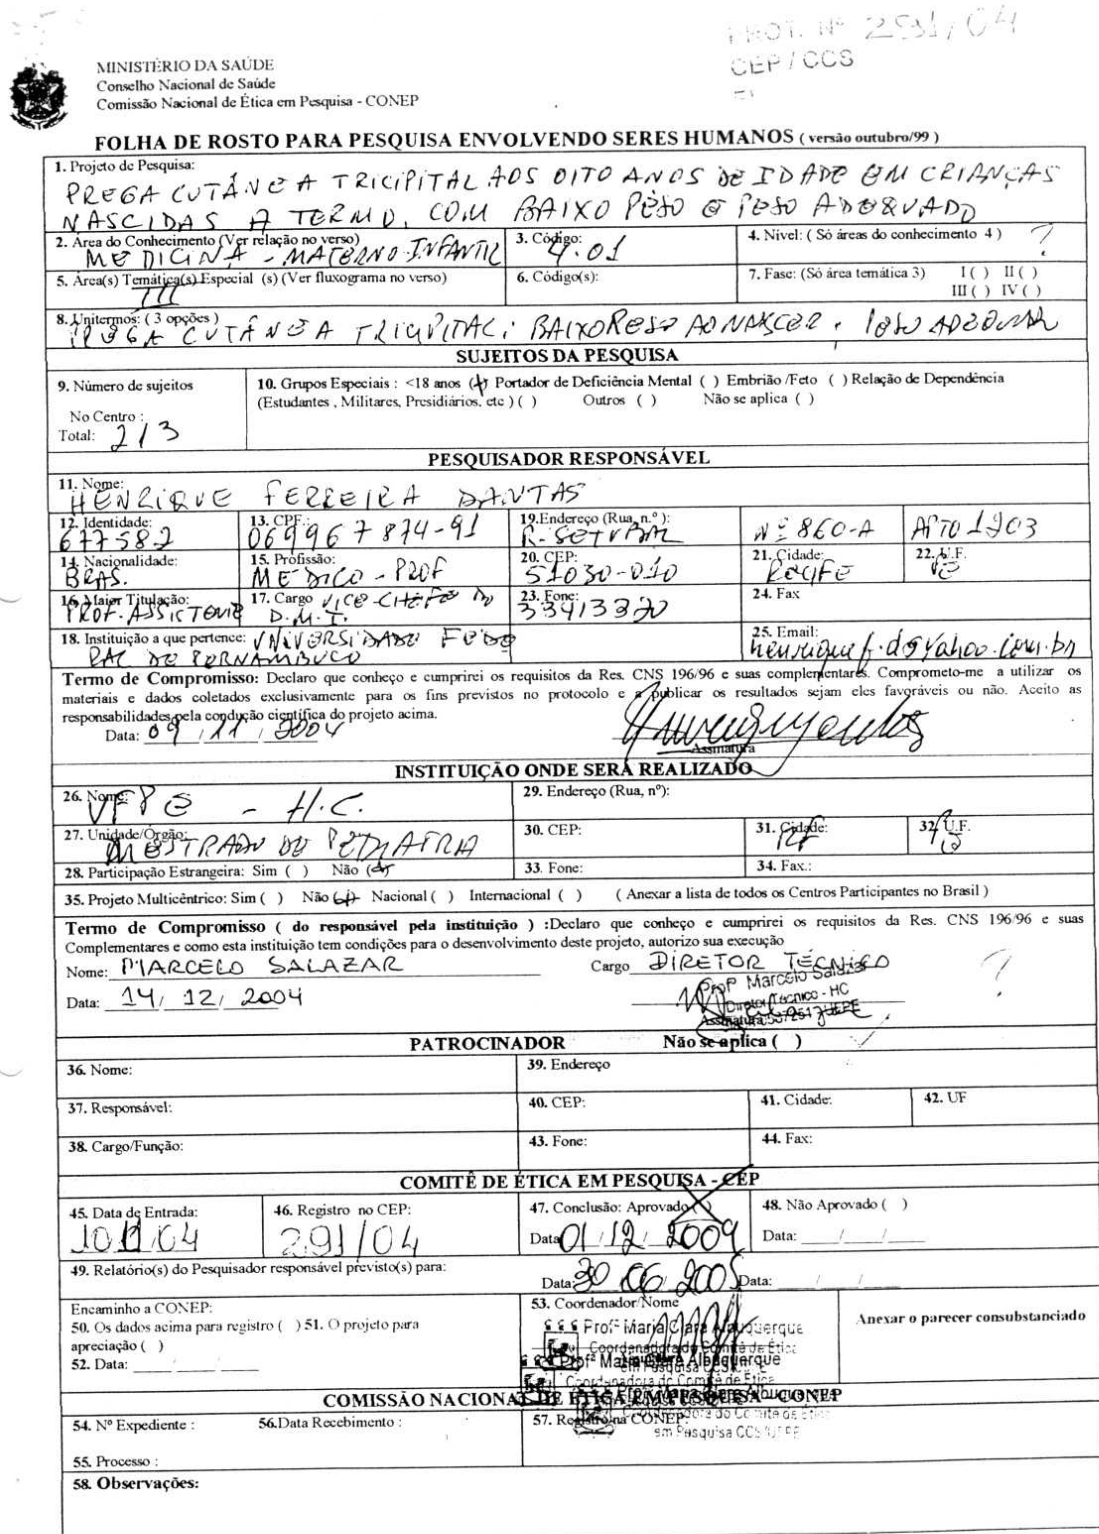 PROT. Nº 291/04
CEP / CCS
MINISTÉRIO DA SAÚDE
Conselho Nacional de Saúde
Comissão Nacional de Ética em Pesquisa - CONEP
FOLHA DE ROSTO PARA PESQUISA ENVOLVENDO SERES HUMANOS ( versão outubro/99 )
1. Projeto de Pesquisa:
PREGA CUTÂNEA TRICIPITAL AOS OITO ANOS DE IDADE EM CRIANÇAS
NASCIDAS A TERMO, COM BAIXO PESO E PESO ADEQUADO
2. Área do Conhecimento (Ver relação no verso) 3. Código: 4. Nível: ( Só áreas do conhecimento 4 ) ?
MEDICINA - MATERNO-INFANTIL 4.01
5. Área(s) Temática(s) Especial (s) (Ver fluxograma no verso) 6. Código(s): 7. Fase: (Só área temática 3) I ( ) II ( )
III III ( ) IV ( )
8. Unitermos: ( 3 opções )
PREGA CUTÂNEA TRICIPITAL; BAIXO PESO AO NASCER, PESO
SUJEITOS DA PESQUISA
9. Número de sujeitos 10. Grupos Especiais : <18 anos (x) Portador de Deficiência Mental ( ) Embrião /Feto ( ) Relação de Dependência
(Estudantes , Militares, Presidiários, etc ) ( ) Outros ( ) Não se aplica ( )
No Centro :
Total: 213
PESQUISADOR RESPONSÁVEL
11. Nome:
HENRIQUE FERREIRA DANTAS
12. Identidade: 13. CPF.: 19.Endereço (Rua, n.º ):
677582 069967874-91 R-SETUBAL Nº 860-A APTO 1903
14. Nacionalidade: 15. Profissão: 20. CEP: 21. Cidade: 22. U.F.
BRAS. MEDICO - PROF 51030-010 RECIFE PE
16. Maior Titulação: 17. Cargo VICE-CHEFE DO 23. Fone: 24. Fax
PROF. ASSISTENTE D.M.I. 33413320
18. Instituição a que pertence: UNIVERSIDADE FEDE 25. Email:
RAL DE PERNAMBUCO henriquef.d@yahoo.com.br
Termo de Compromisso: Declaro que conheço e cumprirei os requisitos da Res. CNS 196/96 e suas complementares. Comprometo-me a utilizar os
materiais e dados coletados exclusivamente para os fins previstos no protocolo e a publicar os resultados sejam eles favoráveis ou não. Aceito as
responsabilidades pela condução científica do projeto acima.
Data: 09 / 11 / 2004
Assinatura
INSTITUIÇÃO ONDE SERÁ REALIZADO
26. Nome: 29. Endereço (Rua, nº):
UFPE - H.C.
27. Unidade/Órgão: 30. CEP: 31. Cidade: 32. U.F.
MESTRADO DE PEDIATRIA RF PE
28. Participação Estrangeira: Sim ( ) Não (x) 33. Fone: 34. Fax.:
35. Projeto Multicêntrico: Sim ( ) Não (x) Nacional ( ) Internacional ( ) ( Anexar a lista de todos os Centros Participantes no Brasil )
Termo de Compromisso ( do responsável pela instituição ) :Declaro que conheço e cumprirei os requisitos da Res. CNS 196/96 e suas
Complementares e como esta instituição tem condições para o desenvolvimento deste projeto, autorizo sua execução
Nome: MARCELO SALAZAR Cargo DIRETOR TÉCNICO ?
Profº Marcelo Salazar
Data: 14/ 12/ 2004 Diretor Técnico - HC
Assinatura UFPE
PATROCINADOR Não se aplica ( )
36. Nome: 39. Endereço
37. Responsável: 40. CEP: 41. Cidade: 42. UF
38. Cargo/Função: 43. Fone: 44. Fax:
COMITÊ DE ÉTICA EM PESQUISA - CEP
45. Data de Entrada: 46. Registro no CEP: 47. Conclusão: Aprovado (X) 48. Não Aprovado ( )
10/11/04 291/04 Data 01/12/2004 Data: ____/____/____
49. Relatório(s) do Pesquisador responsável previsto(s) para:
Data: 30 06 2005 Data: / /
Encaminho a CONEP: 53. Coordenador/Nome Anexar o parecer consubstanciado
50. Os dados acima para registro ( ) 51. O projeto para Profª Maria Clara Albuquerque
apreciação ( ) Coordenadora do Comitê de Ética
52. Data: ____/____/____ Profª Maria Clara Albuquerque
Coordenadora do Comitê de Ética
COMISSÃO NACIONAL DE ÉTICA EM PESQUISA - CONEP
54. Nº Expediente : 56.Data Recebimento : 57. Registro na CONEP:
Coordenadora do Comitê de Ética
em Pesquisa CCS/UFPE
55. Processo :
58. Observações: